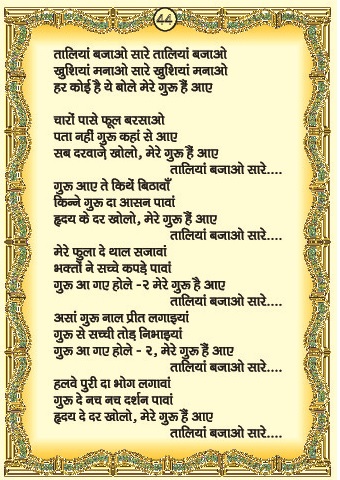 44
तालियां बजाओ सारे तालियां बजाओ
खुशियां मनाओ सारे खुशियां मनाओ
हर कोई है ये बोले मेरे गुरू हैं आए
चारों पासे फूल बरसाओ
पता नहीं गुरू कहां से आए
सब दरवाजे खोलो, मेरे गुरू हैं आए
तालियां बजाओ सारे....
गुरू आए ते कियें बिठावाँ
किन्ने गुरू दा आसन पावां
हृदय के दर खोलो, मेरे गुरू हैं आए
तालियां बजाओ सारे....
मेरे फुला दे थाल सजावां
भक्तों ने सच्चे कपड़े पावां
गुरू आ गए होले -२ मेरे गुरू है आए
तालियां बजाओ सारे....
असां गुरू नाल प्रीत लगाइयां
गुरू से सच्ची तोड़ निभाइयां
गुरू आ गए होले - २, मेरे गुरू हैं आए
तालियां बजाओ सारे....
हलवे पुरी दा भोग लगावां
गुरू दे नच नच दर्शन पावां
हृदय दे दर खोलो, मेरे गुरू हैं आए
तालियां बजाओ सारे....